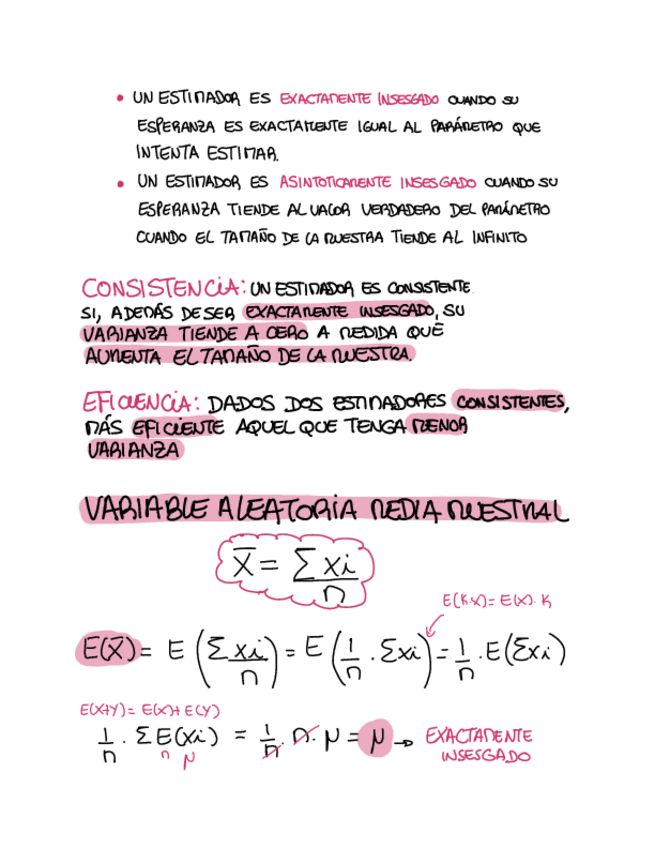 • UN ESTIMADOR ES EXACTAMENTE INSESGADO CUANDO SU
ESPERANZA ES EXACTAMENTE IGUAL AL PARÁMETRO QUE
INTENTA ESTIMAR.
• UN ESTIMADOR ES ASINTOTICAMENTE INSESGADO CUANDO SU
ESPERANZA TIENDE AL VALOR VERDADERO DEL PARÁMETRO
CUANDO EL TAMAÑO DE LA MUESTRA TIENDE AL INFINITO
CONSISTENCIA: UN ESTIMADOR ES CONSISTENTE
SI, ADEMÁS DE SER EXACTAMENTE INSESGADO, SU
VARIANZA TIENDE A CERO A MEDIDA QUE
AUMENTA EL TAMAÑO DE LA MUESTRA.
EFICIENCIA: DADOS DOS ESTIMADORES CONSISTENTES,
MÁS EFICIENTE AQUEL QUE TENGA MENOR
VARIANZA
VARIABLE ALEATORIA MEDIA MUESTRAL
X̄ = Σxi/n
E(k.x) = E(x).k
E(X̄) = E(Σxi/n) = E(1/n . Σxi) = 1/n . E(Σxi)
E(X+Y) = E(X) + E(Y)
1/n . ΣE(xi) = 1/n . n . μ = μ → EXACTAMENTE
n μ INSESGADO